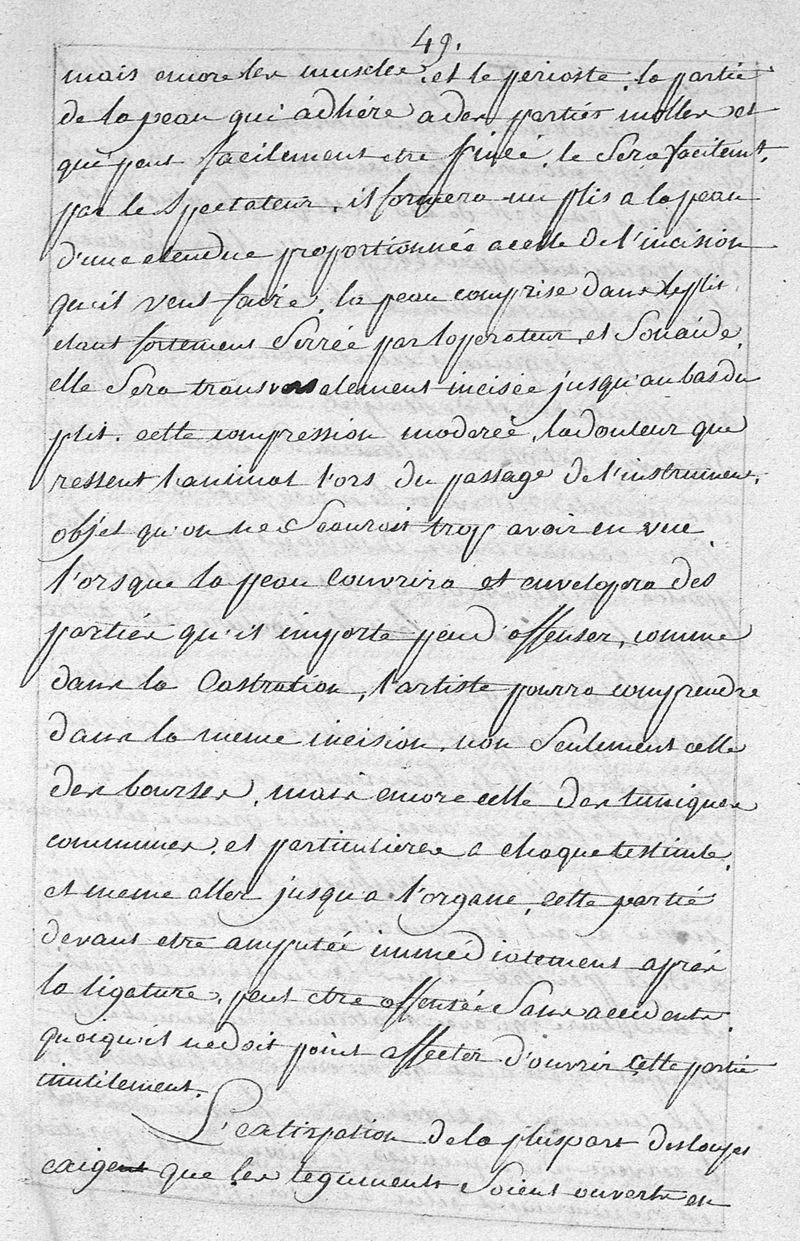 49.
mais encore les muscles, et le perioste, la partie
de la peau qui adhére a des parties molles et
qui peut facilement etre pincé, le Sera facilemt,
par le Spectateur, il formera un plis a la peau
d'une etendue proportionnée a celle de l'incision
qu'il veut faire, la peau comprise dans le plit
etant fortement Serrée par loperateur, et Son aide,
elle Sera transversalement incisée jusqu'au bas du
plit. cette compression moderée, la douleur que
ressent l'animal l'ors du passage de l'instrument,
objet qu'on ne Scauroit trop avoir en vue.
l'orsque la peau couvrira et envelopera des
parties qu'il importe peu d'offenser, comme
dans la Castration, l'artiste pourra comprendre
dans la meme incision, non Seulement celle
des bourses, mais encore celle des tuniques
communes, et particulieres a chaque testicule,
et meme aller jusqu'a l'organe, cette partié
devant etre amputée immédiatement aprés
la ligature, peut etre offensée Sans accidents
quoiqu'il ne doit point affecter d'ouvrir cette partie
inutilement.
L'extirpation de la pluspart des loupes
exigent que les teguments Soient ouverts en